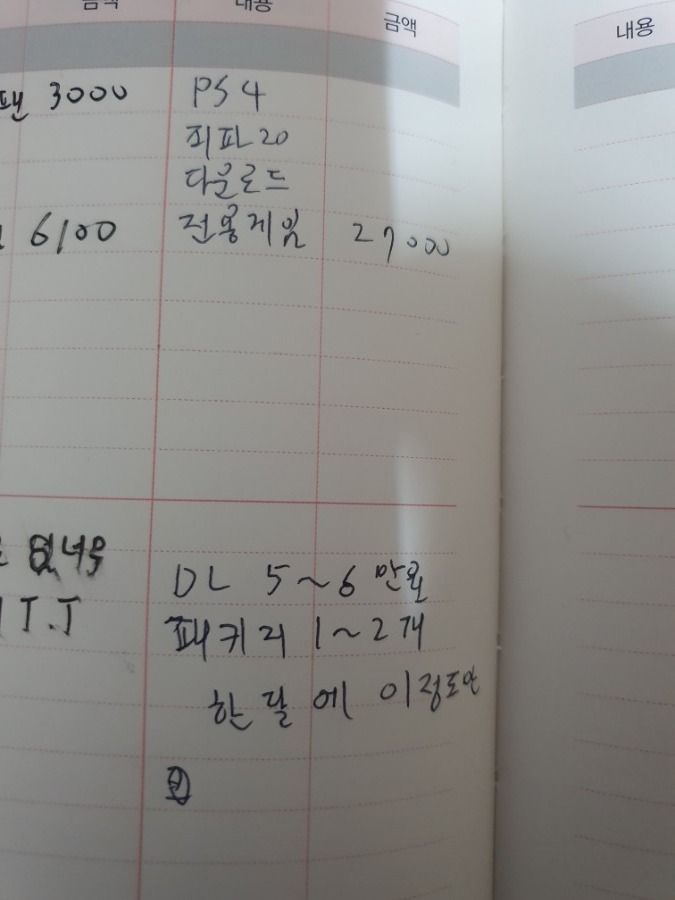 금액 내용 금액 내용
3000 PS4
피파20
다운로드
6100 전용게임 27000
없너우
T.T
DL 5~6만원
패키지 1~2개
한 달에 이정도만